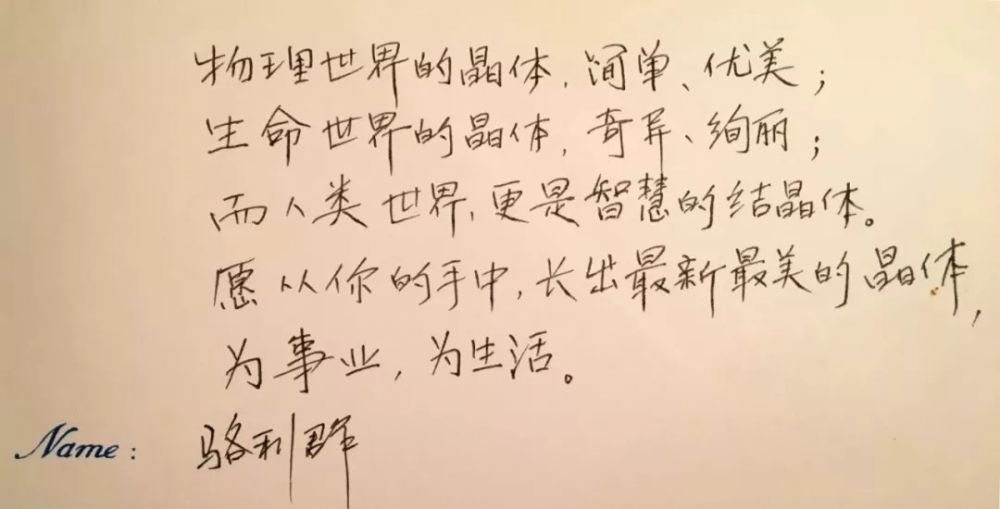 物理世界的晶体，简单、优美；
生命世界的晶体，奇异、绚丽；
而人类世界，更是智慧的结晶体。
愿从你的手中，长出最新最美的晶体，
为事业，为生活。
Name: 骆利群